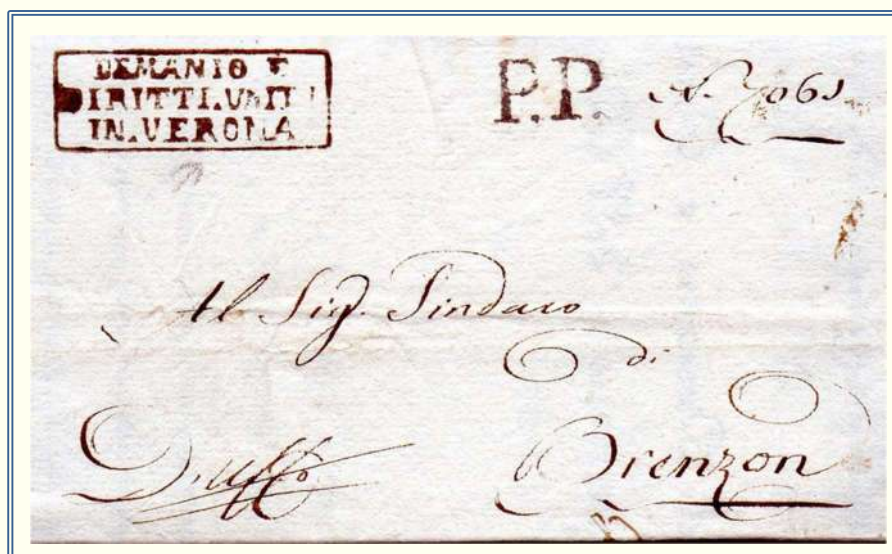 DEMANIO E
DIRITTI.UNITI
IN.VERONA
P.P.
N. 7061
Al Sig. Sindaco
di
Brenzon
D'uffo